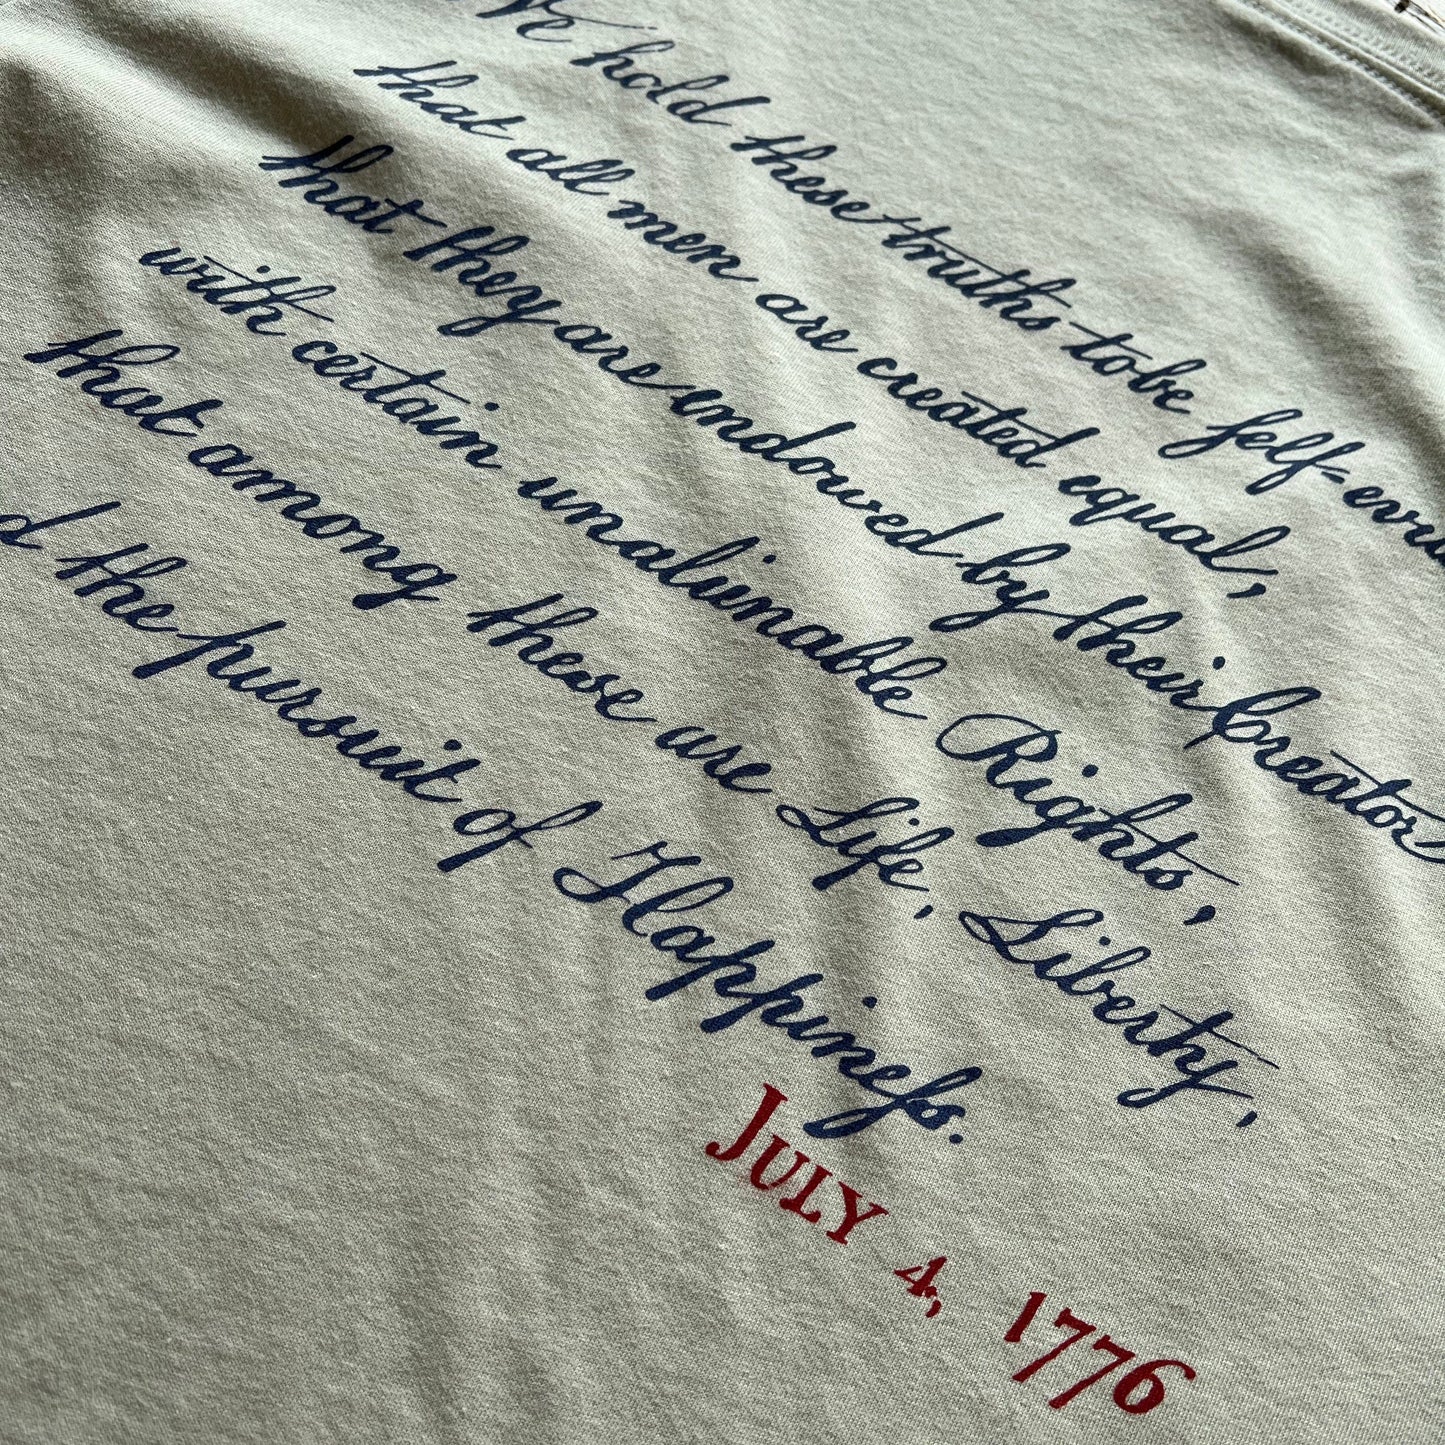 We hold these truths to be ſelf-evid
that all men are created equal,
that they are endowed by their Creator
with certain unalienable Rights,
that among these are Life, Liberty,
d the pursuit of Happineſs.
July 4, 1776